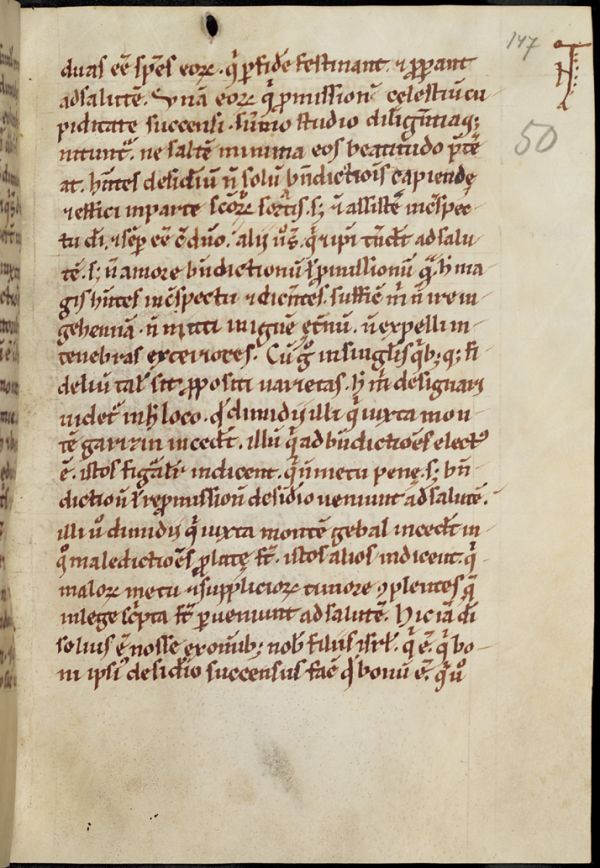 147
50
duas eē spēs eoꝝ · q̄ ꝑfidē festinant · ⁊ ꝓꝑant
ad salutē . Vnā eoꝝ q̄ ꝓmissionū celestiū cu
piditate succensi . sūmo studio diligentiaq;
nitunt᷑ . ne saltē minima eos beatitudo p̄te
at . hn̄tes desideriū n̄ solū bn̄dictiōis capiendę
⁊ effici in parte sc̄oꝝ sortis . s; ⁊ assistē in ɔspec
tu dī . ⁊ sēp eē cū dn̄o . alij uº . q̄ ⁊ ipsi tēdt ad salu
tē . s; n̄ amore bn̄dictionū ł ꝓmissionū
gis hn̄tes in ɔspectu ⁊ dicn̄tes . suffic̄ m̄ n̄ ire in
gehennā . n̄ mitti in ignē et̄nū . n̄ expelli in
tenebras exteriores . Cū gº in singulis q̄b; q; fi
deliū tał sit ꝓpositi uarietas . h̄ m̄ designari
uidet᷑ in h̄ loco . qđ dimidij illi q̄ iuxta mon
tē garizin inced̄t . illū q̄ ad bn̄dictiōēs elect᷒
ē . istos figałit̄ indicent . q̄ n̄ metu penę . s; bn̄
dictionū ł repmissionū desiđio ueniunt ad salutē .
illi uº dimidij q̄ iuxta montē gebal inced̄t in
qº maledictiōēs ꝓlatę st̄ . istos alios indicent . q̄
maloꝝ metu ⁊ supplicioꝝ timore ɔplentes q̄
in lege sc̄pta st̄ ꝑueniunt ad salutē . Hic iā dī
solius ē nosse ex omīb; nob̄ filiis isrł . q̄ ē . q̄ bo
ni ipsi᷒ desiđio succensus faē qđ bonū ē . q̄ uº